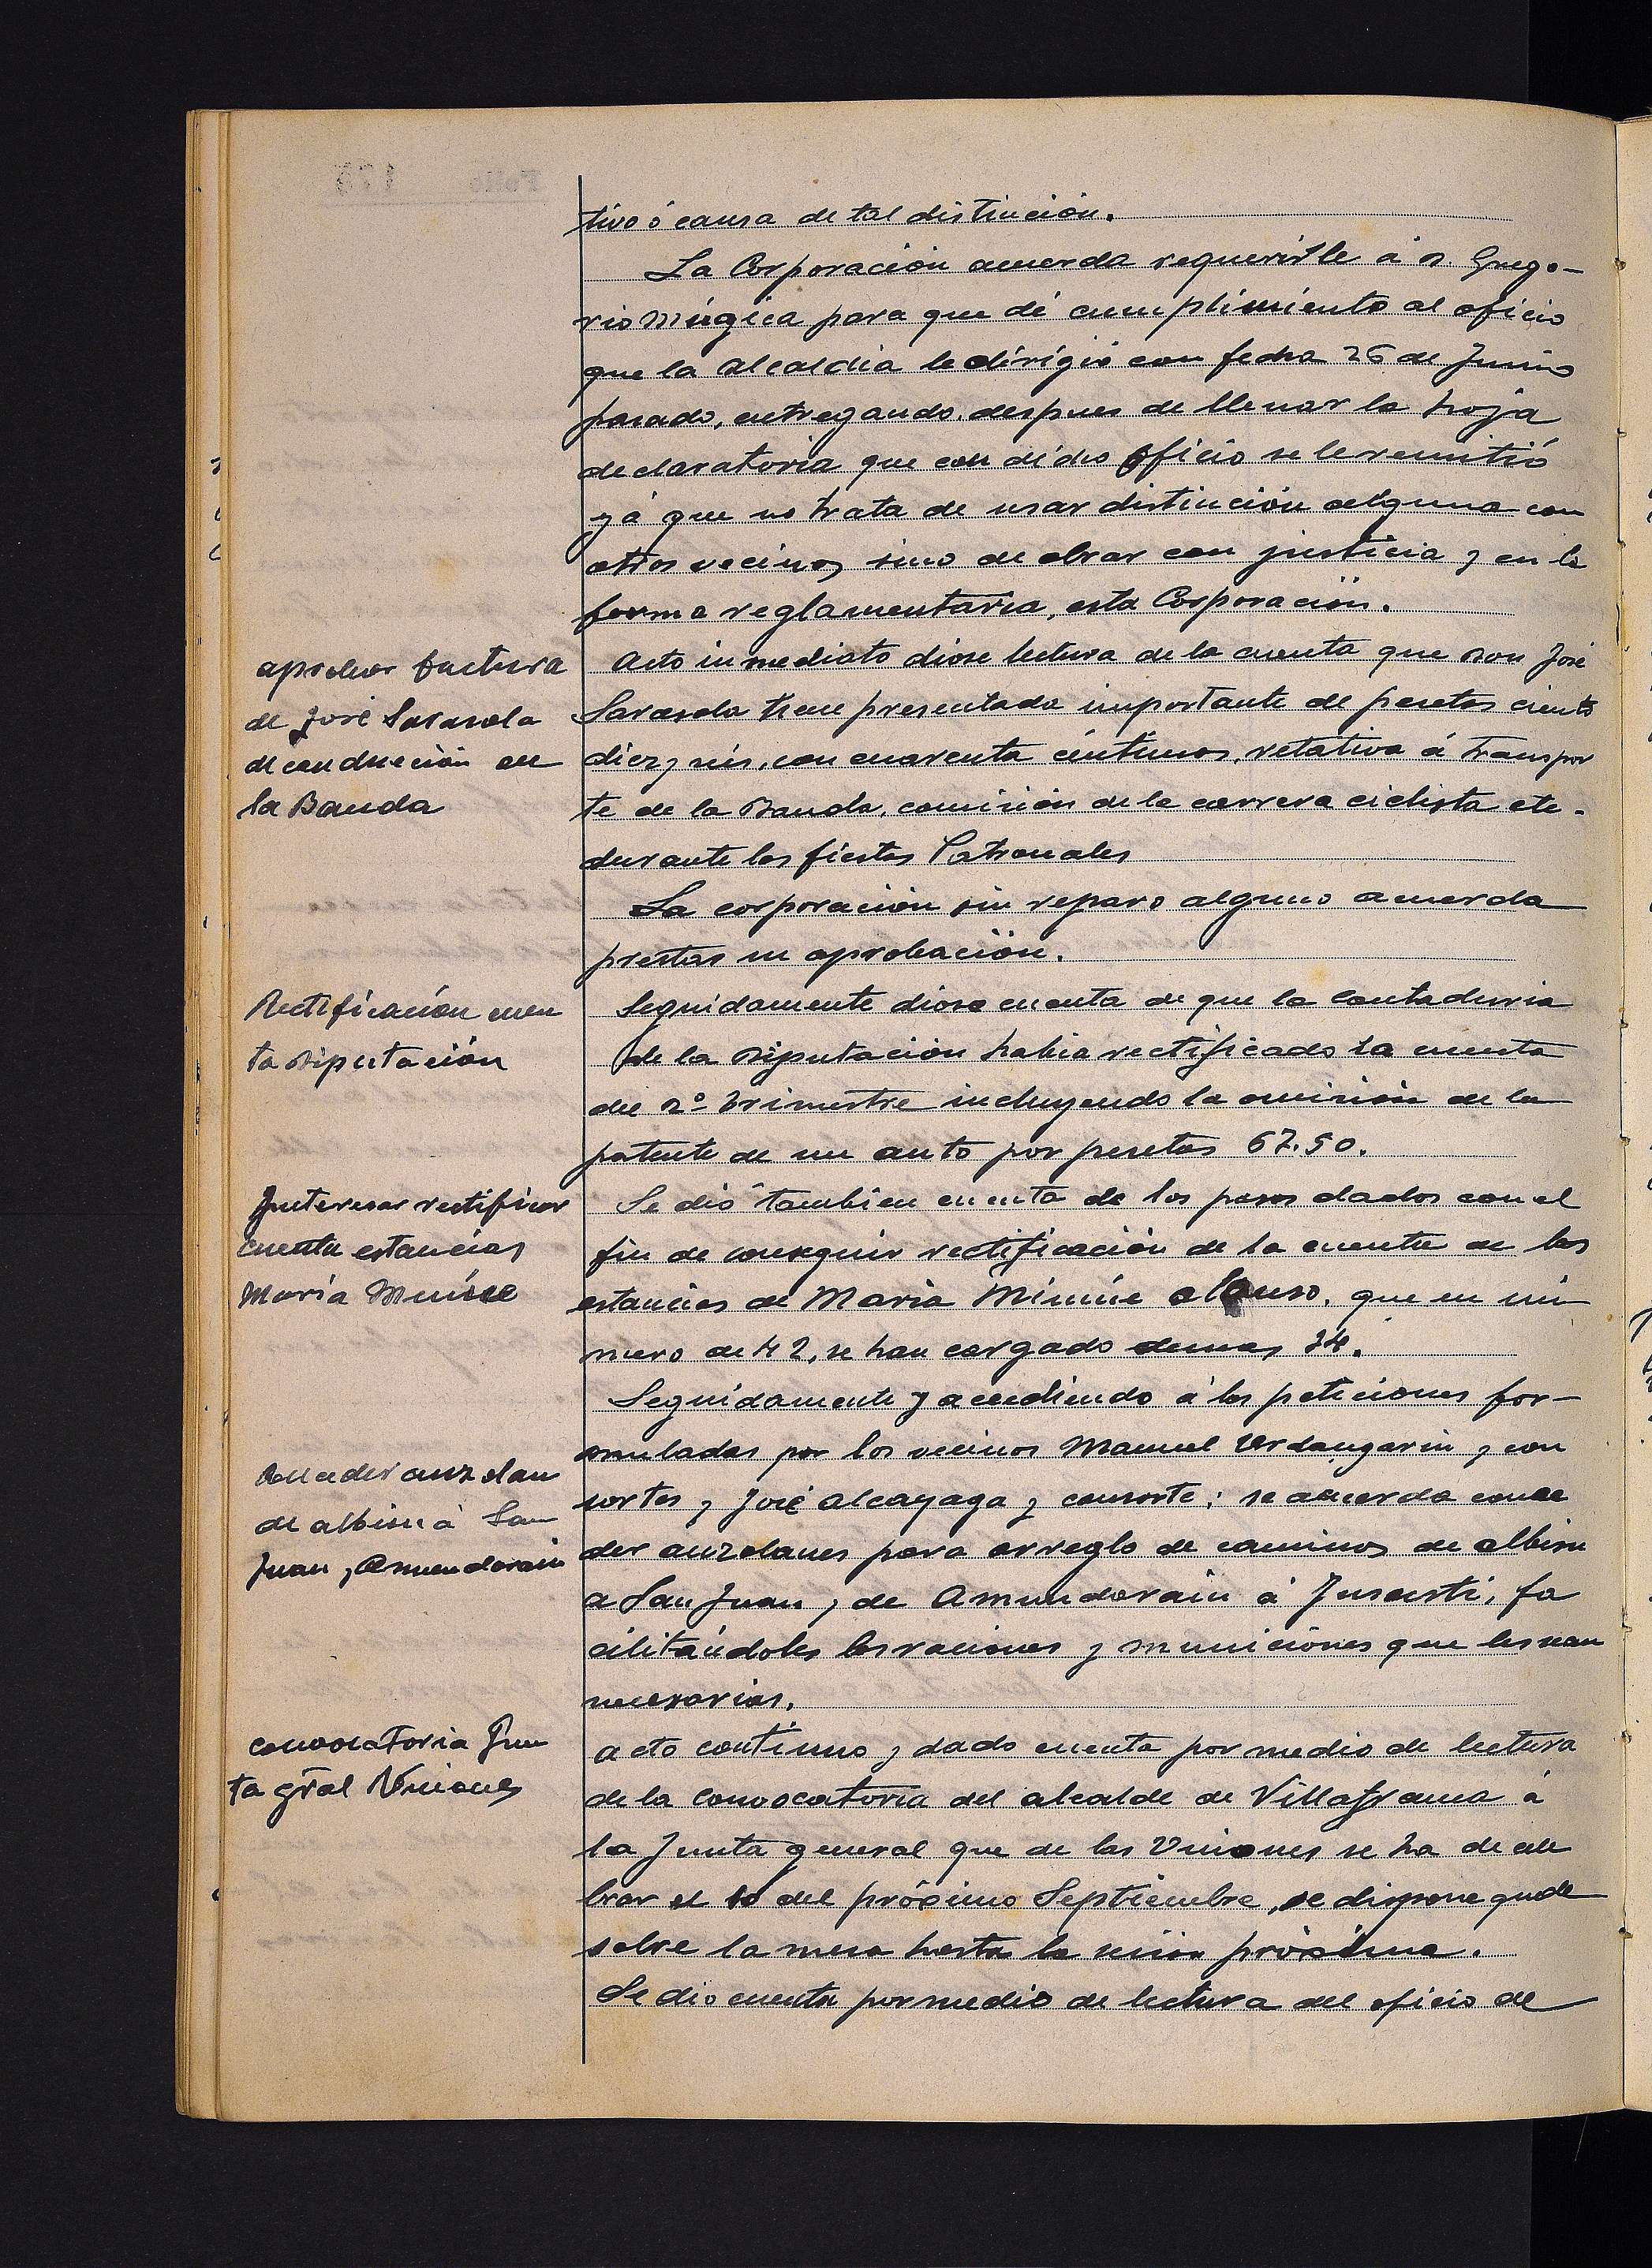 tivo ó causa de tal distinción.
La Corporación acuerda requerirle á D. Grego-
rio Múgica para que dé cumplimiento al oficio
que la Alcaldia le dirigió con fecha 26 de Junio
pasado, entregando despues de llenar la hoja
declaratoria que con dicho oficio se le remitió
yá que no trata de usar distinción alguna con
otros vecinos sino de obrar con justicia y en la
forma reglamentaria, esta Corporación.
aprobar factura
de José Sarasola
de conducción de
la Banda
Acto inmediato diose lectura de la cuenta que Don José
Sarasola tiene presentada importante de pesetas ciento
diez y seis, con cuarenta céntimos, relativa á transpor
te de la Banda, comisión de la carrera ciclista etc.
durante las fiestas Patronales
La corporación sin reparo alguno acuerda
prestar su aprobación.
Rectificación cuen
ta Diputación
Seguidamente diose cuenta de que la Contaduria
de la Diputación habia rectificado la cuenta
del 2º trimestre incluyendo la omisión de la
patente de un auto por pesetas 67.50.
Interesar rectificar
cuenta estancias
María
Se dió tambien cuenta de los pasos dados con el
fin de conseguir rectificación de la cuenta de las
estancias de Maria Alonso, que en nú
mero de 42, se han cargado demas 34.
Seguidamente y accediendo á las peticiones for-
muladas por los vecinos Manuel Urdangarin y con
sortes y José Alcayaga y consorte; se acuerda conce
Conceder auzolan
de albisu á San
Juan y Amundarain
der auzolanes para arreglo de caminos de albisu
a San Juan y de Amundarain á Jusasti, fa
cilitándoles las raciones y municiones que les sean
necesarias.
convocatoria Jun
ta gral Uniones
acto continuo y dado cuenta por medio de lectura
de la convocatoria del alcalde de Villafranca á
la Junta general que de las Uniones se ha de cele
brar el 10 del próximo Septiembre, se dispone quede
sobre la mesa hasta la sesión próxima.
Se dio cuenta por medio de lectura del oficio de